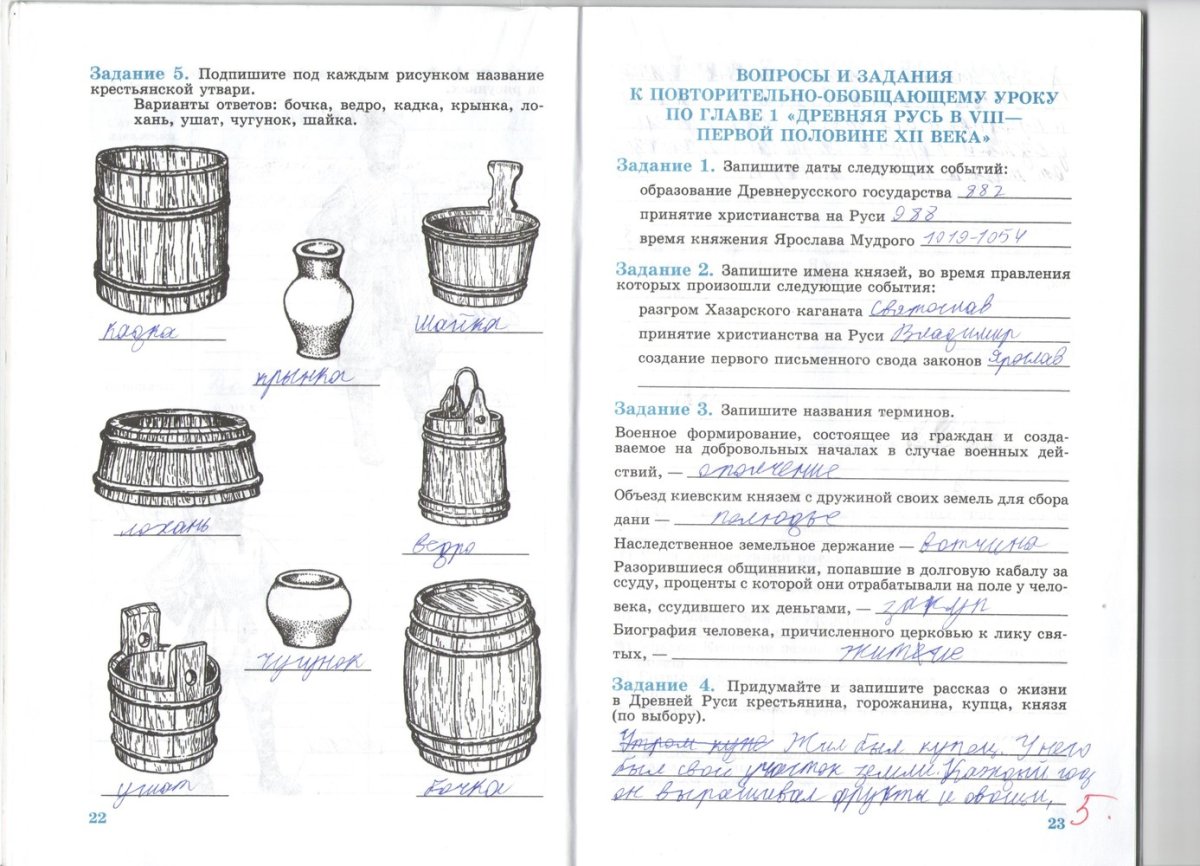 Задание 5. Подпишите под каждым рисунком название
крестьянской утвари.
Варианты ответов: бочка, ведро, кадка, крынка, ло-
хань, ушат, чугунок, шайка.
кадка
шайка
крынка
лохань
ведро
чугунок
ушат
бочка
22
ВОПРОСЫ И ЗАДАНИЯ
К ПОВТОРИТЕЛЬНО-ОБОБЩАЮЩЕМУ УРОКУ
ПО ГЛАВЕ 1 «ДРЕВНЯЯ РУСЬ В VIII—
ПЕРВОЙ ПОЛОВИНЕ XII ВЕКА»
Задание 1. Запишите даты следующих событий:
образование Древнерусского государства 882
принятие христианства на Руси 988
время княжения Ярослава Мудрого 1019-1054
Задание 2. Запишите имена князей, во время правления
которых произошли следующие события:
разгром Хазарского каганата Святослав
принятие христианства на Руси Владимир
создание первого письменного свода законов Ярослав
Задание 3. Запишите названия терминов.
Военное формирование, состоящее из граждан и созда-
ваемое на добровольных началах в случае военных дей-
ствий, — ополчение
Объезд киевским князем с дружиной своих земель для сбора
дани — полюдье
Наследственное земельное держание — вотчина
Разорившиеся общинники, попавшие в долговую кабалу за
ссуду, проценты с которой они отрабатывали на поле у чело-
века, ссудившего их деньгами, — закуп
Биография человека, причисленного церковью к лику свя-
тых, — житие
Задание 4. Придумайте и запишите рассказ о жизни
в Древней Руси крестьянина, горожанина, купца, князя
(по выбору).
Утром купе Жил был купец. У него
был свой участок земли. Каждый год
он выращивал фрукты и овощи,
23 5.